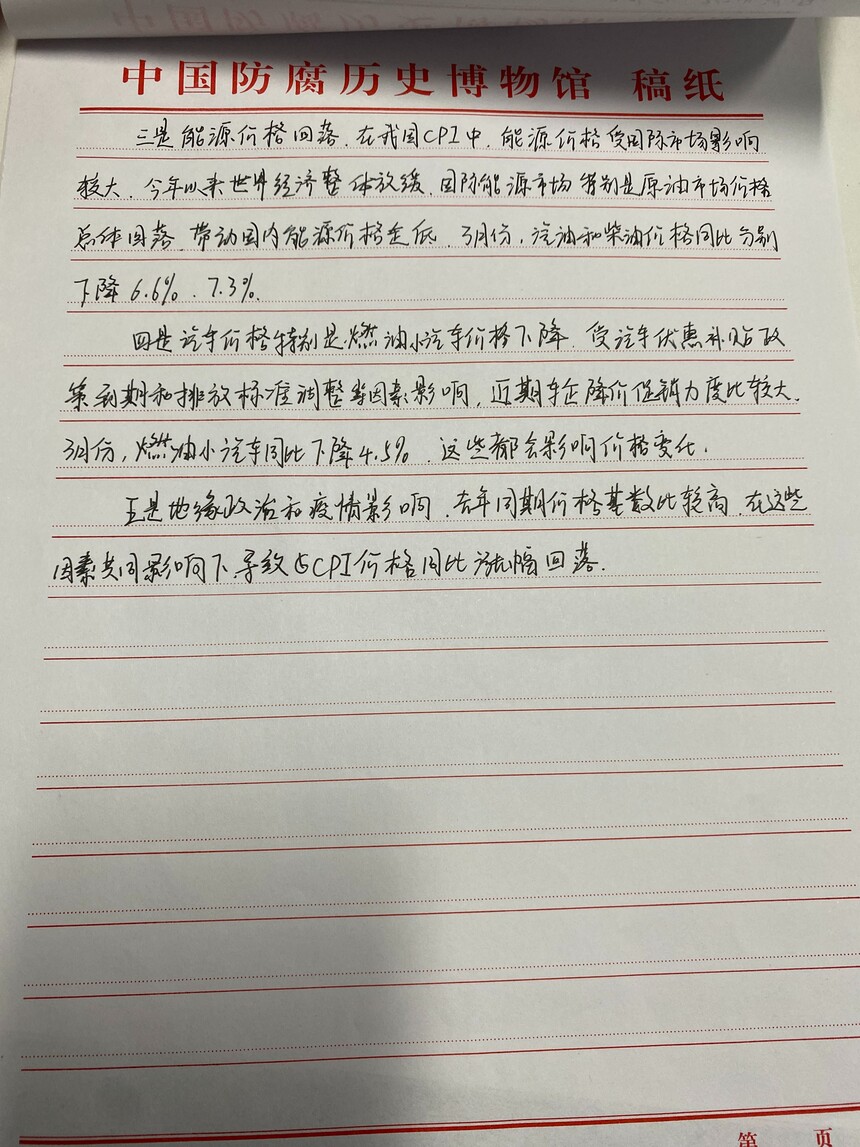 中国防腐历史博物馆 稿纸
三是能源价格回落。在我国CPI中,能源价格受国际市场影响
较大。今年以来世界经济整体放缓,国际能源市场特别是原油市场价格
总体回落,带动国内能源价格走低。3月份,汽油和柴油价格同比分别
下降6.6%、7.3%。
四是汽车价格特别是燃油小汽车价格下降。受汽车优惠补贴政
策到期和排放标准调整等因素影响,近期车企降价促销力度比较大,
3月份,燃油小汽车同比下降4.5%,这些都会影响价格变化。
五是地缘政治和疫情影响,去年同期价格基数比较高,在这些
因素共同影响下,导致与CPI价格同比涨幅回落。
第 页